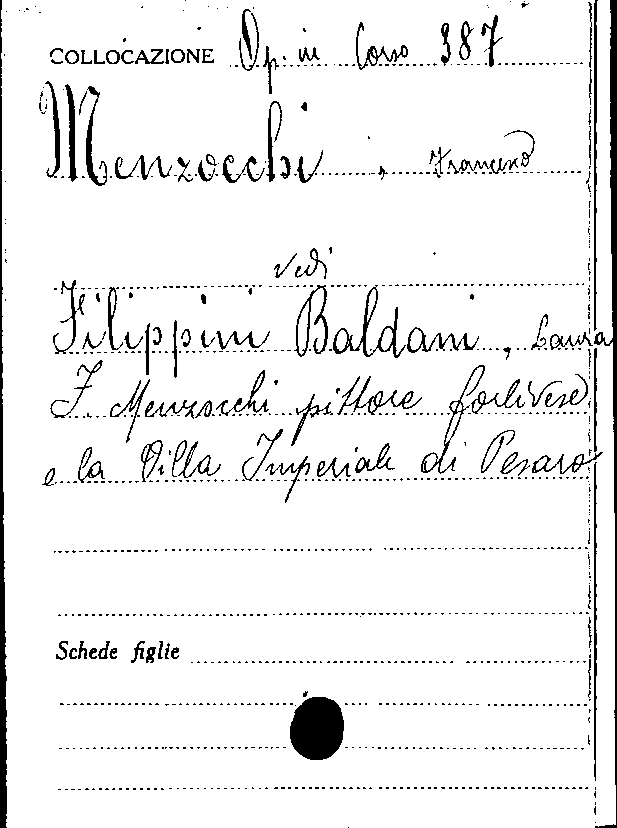 COLLOCAZIONE Op. in Corso 387
Menzocchi, Francesco
vedi
Filippini Baldani, Laura
F. Menzocchi pittore forlivese
e la Villa Imperiale di Pesaro
Schede figlie